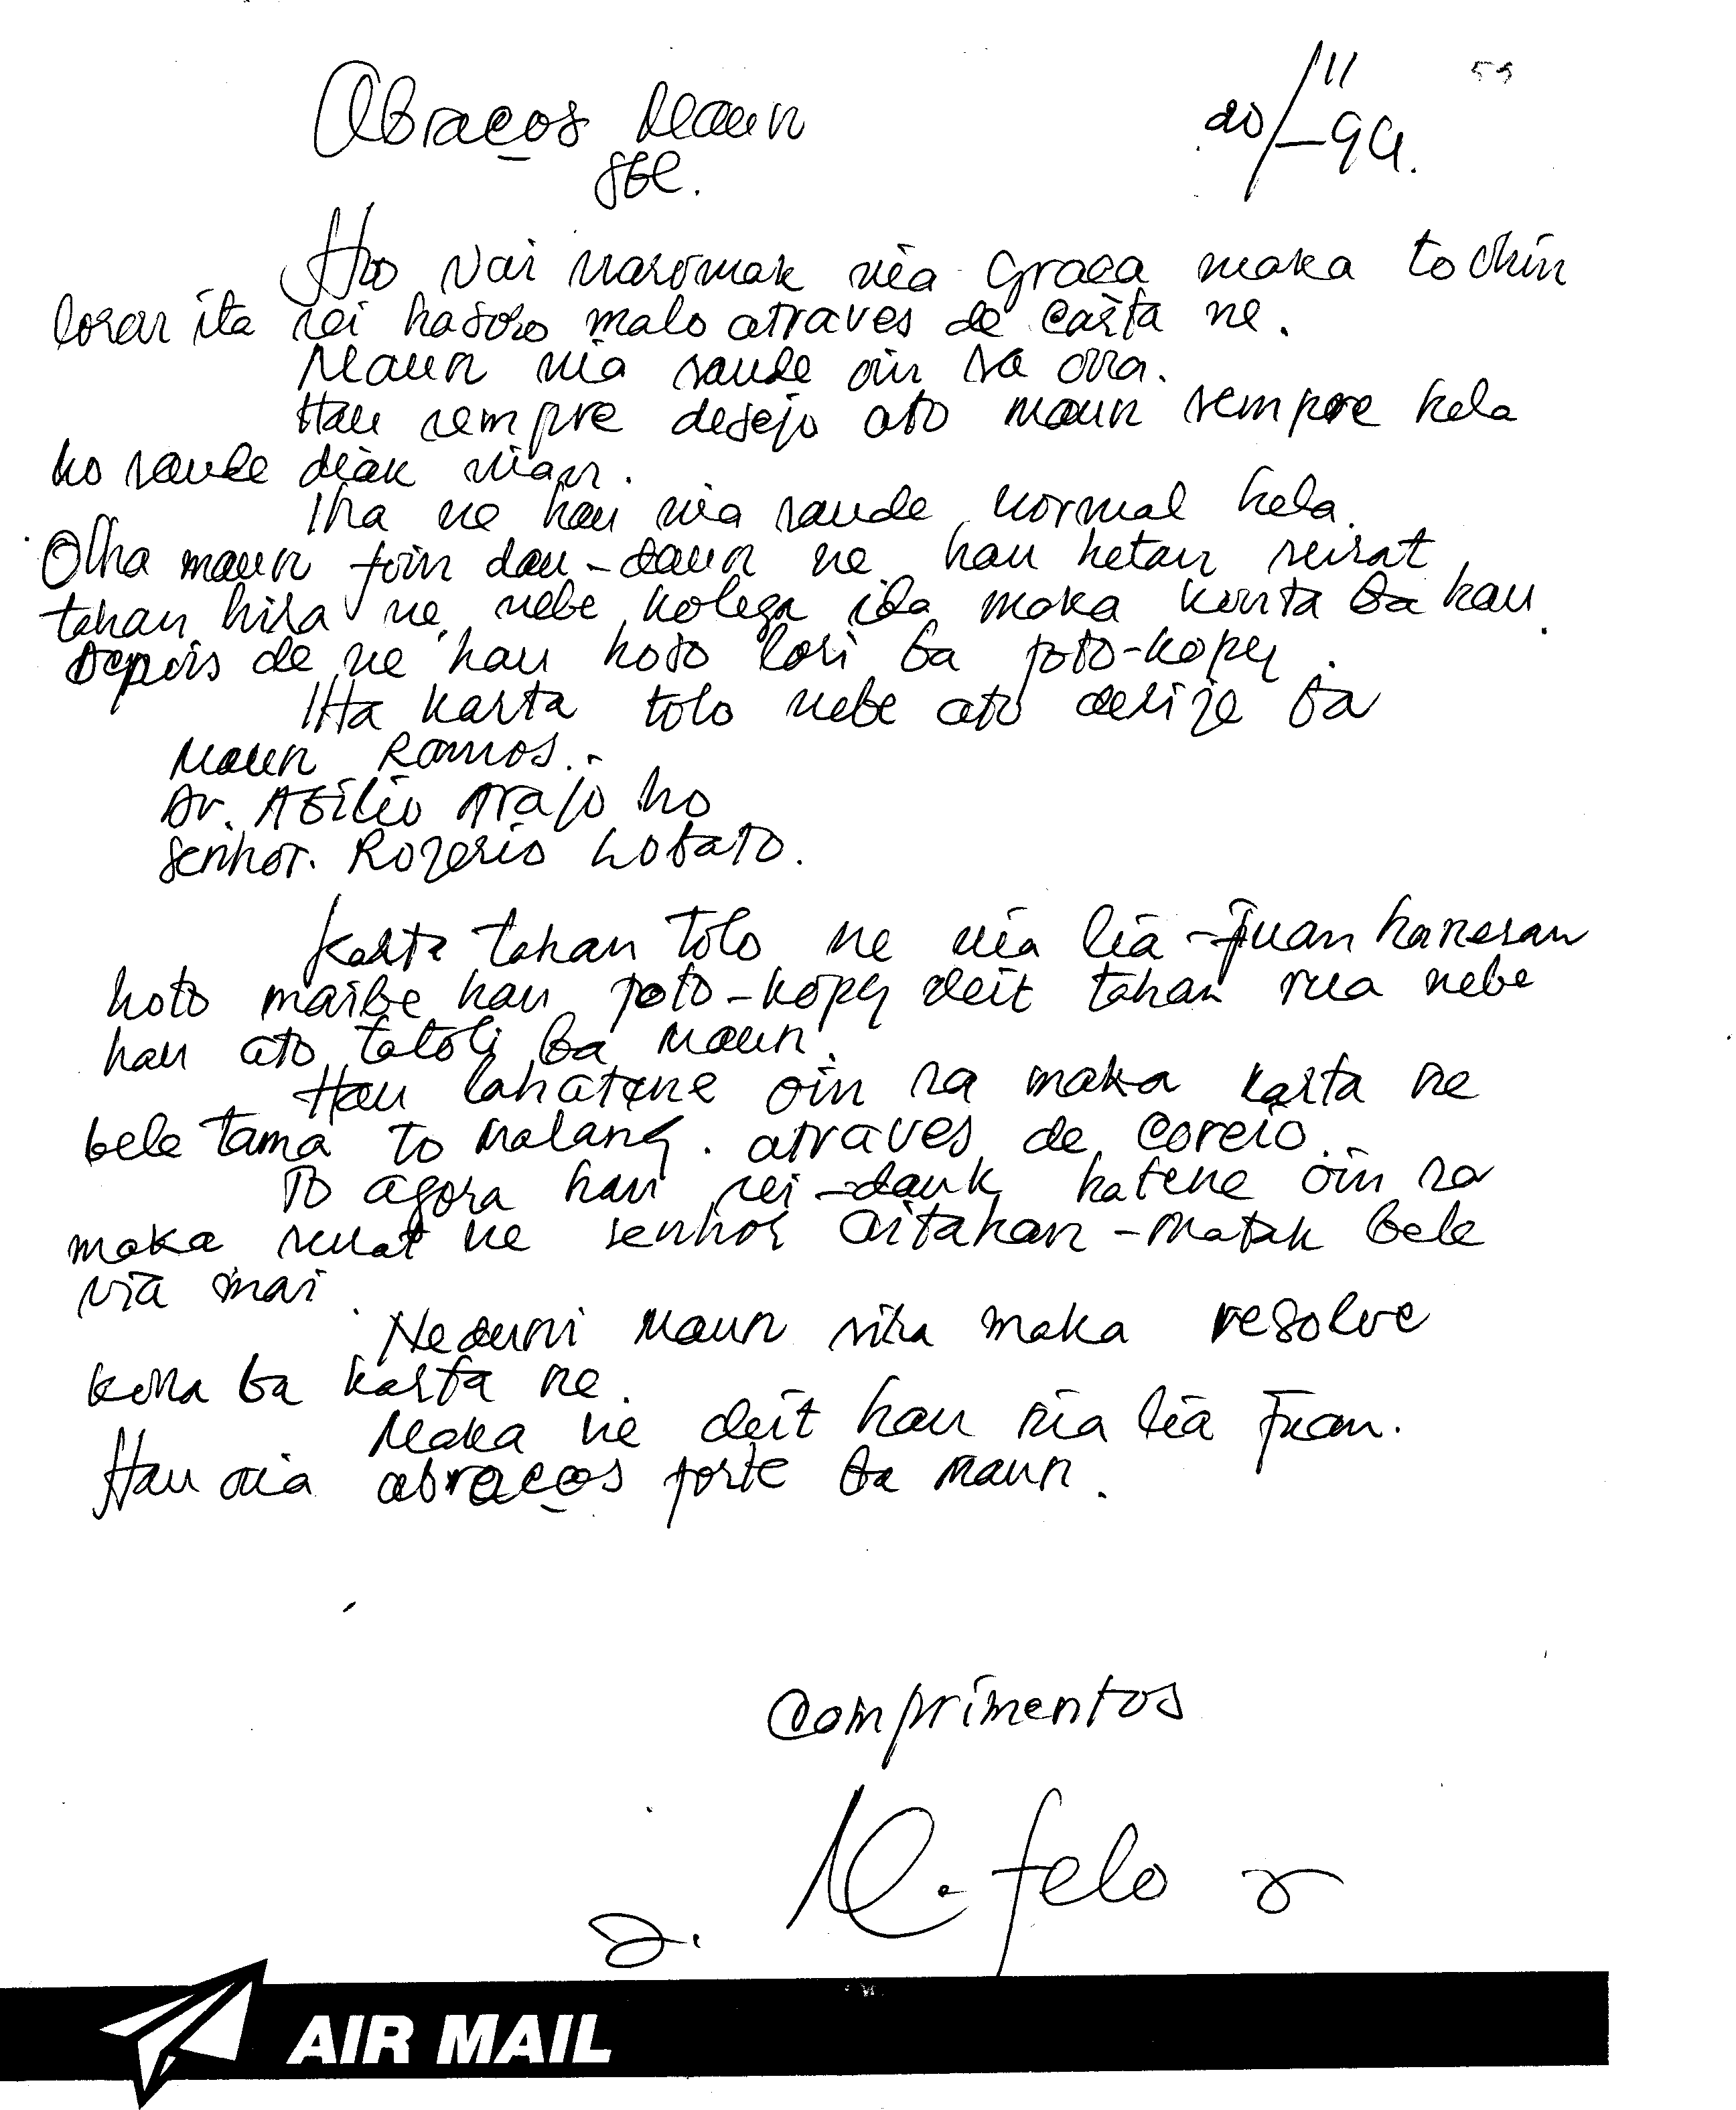 Abraços Maun
20/11-94.
59
Ho Nai Maromak nia graça maka to ohin
loron ita sei hasoro malo atraves de carta ne.
Maun nia saude oin sa ona.
Hau sempre desejo ato maun sempre hela
ho saude diak nian.
Iha ne hau nia saude normal hela.
Olha maun foin dau-daun ne hau hetan surat
tahan hira ne, nebe kolega ida maka konta ba hau.
Depois de ne hau hoto lori ba foto-kopy.
Iha karta tolo nebe ato derije ba
Maun Ramos.-
Dr. Abilio Arajo ho
Senhor. Rogerio Lobato.
Karta tahan tolo ne nia lia-fuan hanesan
hoto maibe hau foto-kopy deit tahan rua nebe
hau ato tatoli ba Maun.
Hau lahatene oin sa maka karta ne
bele tama to Malang. atraves de coreio.
To agora hau sei-dauk hatene oin sa
maka surat ne senhor Aitahan-Matak bele
nia mai.
Neduni Maun sira maka resolve
kona ba karta ne.
Maka ne deit hau nia lia fuan.
Hau nia abraços forte ba Maun.
Comprimentos
M. felo
AIR MAIL